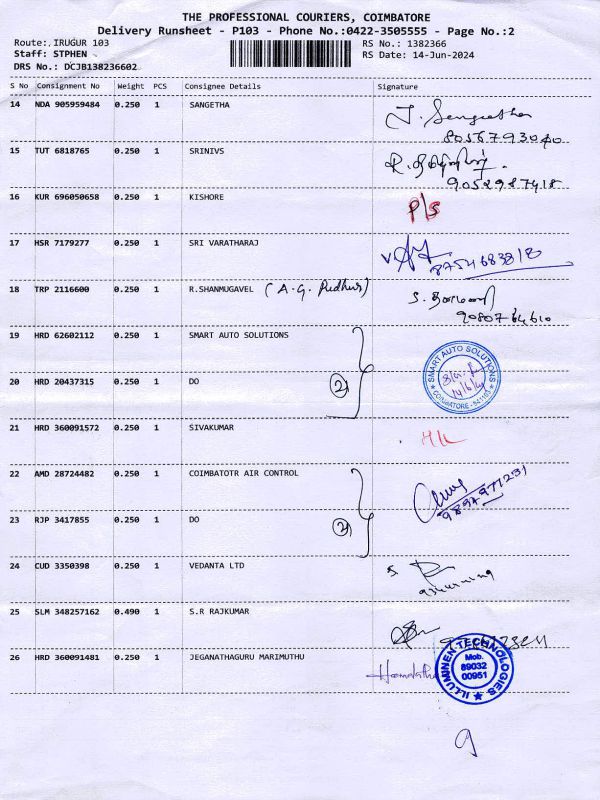 THE PROFESSIONAL COURIERS, COIMBATORE
Delivery Runsheet - P103 - Phone No.:0422-3505555 - Page No.:2
Route: IRUGUR 103 RS No.: 1382366
Staff: STPHEN RS Date: 14-Jun-2024
DRS No.: DCJB138236602
S No Consignment No Weight PCS Consignee Details Signature
14 NDA 905959484 0.250 1 SANGETHA J. Sengeetha
8056793040
15 TUT 6818765 0.250 1 SRINIVS
9052987418
16 KUR 696050658 0.250 1 KISHORE P/S
17 HSR 7179277 0.250 1 SRI VARATHARAJ
8754683818
18 TRP 2116600 0.250 1 R.SHANMUGAVEL (A.G. Pudhur)
9080764610
19 HRD 62602112 0.250 1 SMART AUTO SOLUTIONS
SMART AUTO SOLUTIONS
14/6/24
COIMBATORE
20 HRD 20437315 0.250 1 DO 2
21 HRD 360091572 0.250 1 SIVAKUMAR
22 AMD 28724482 0.250 1 COIMBATOTR AIR CONTROL
23 RJP 3417855 0.250 1 DO 2
24 CUD 3350398 0.250 1 VEDANTA LTD
25 SLM 348257162 0.490 1 S.R RAJKUMAR
26 HRD 360091481 0.250 1 JEGANATHAGURU MARIMUTHU
ILLUMINEN TECHNOLOGIES
Mob.
89032
00951
9